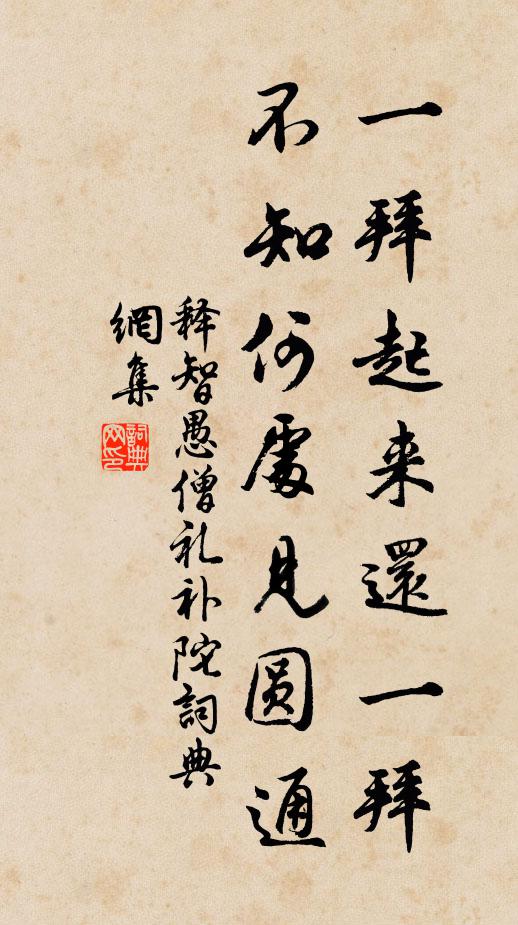 一拜起来還一拜
不知何處見圆通
释智愚僧礼补陀詞典
網集
詞典網印